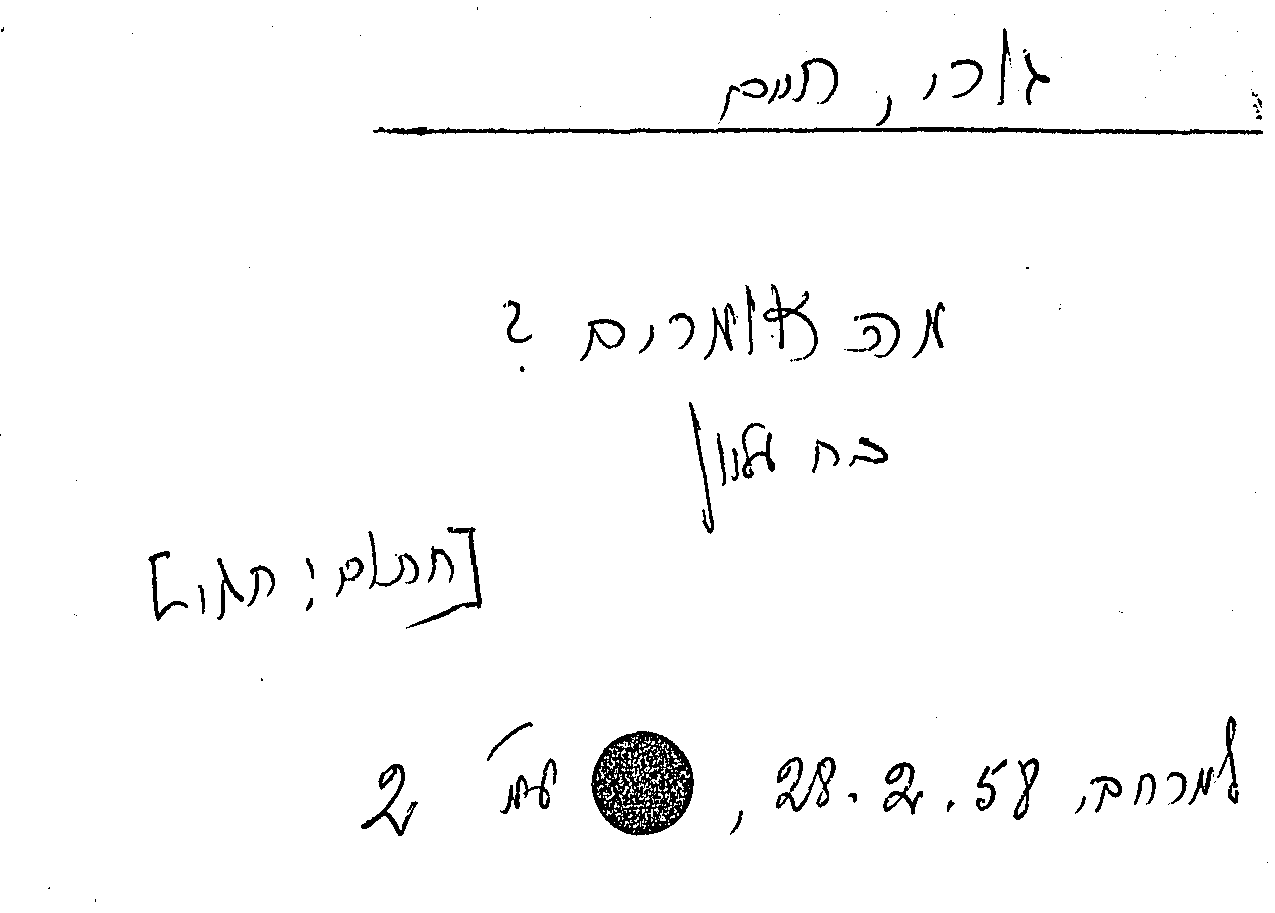 גורי, חיים
מה אומרים?
בת עמון
[חתום: חגי]
למרחב, 28.2.58, עמ' 2